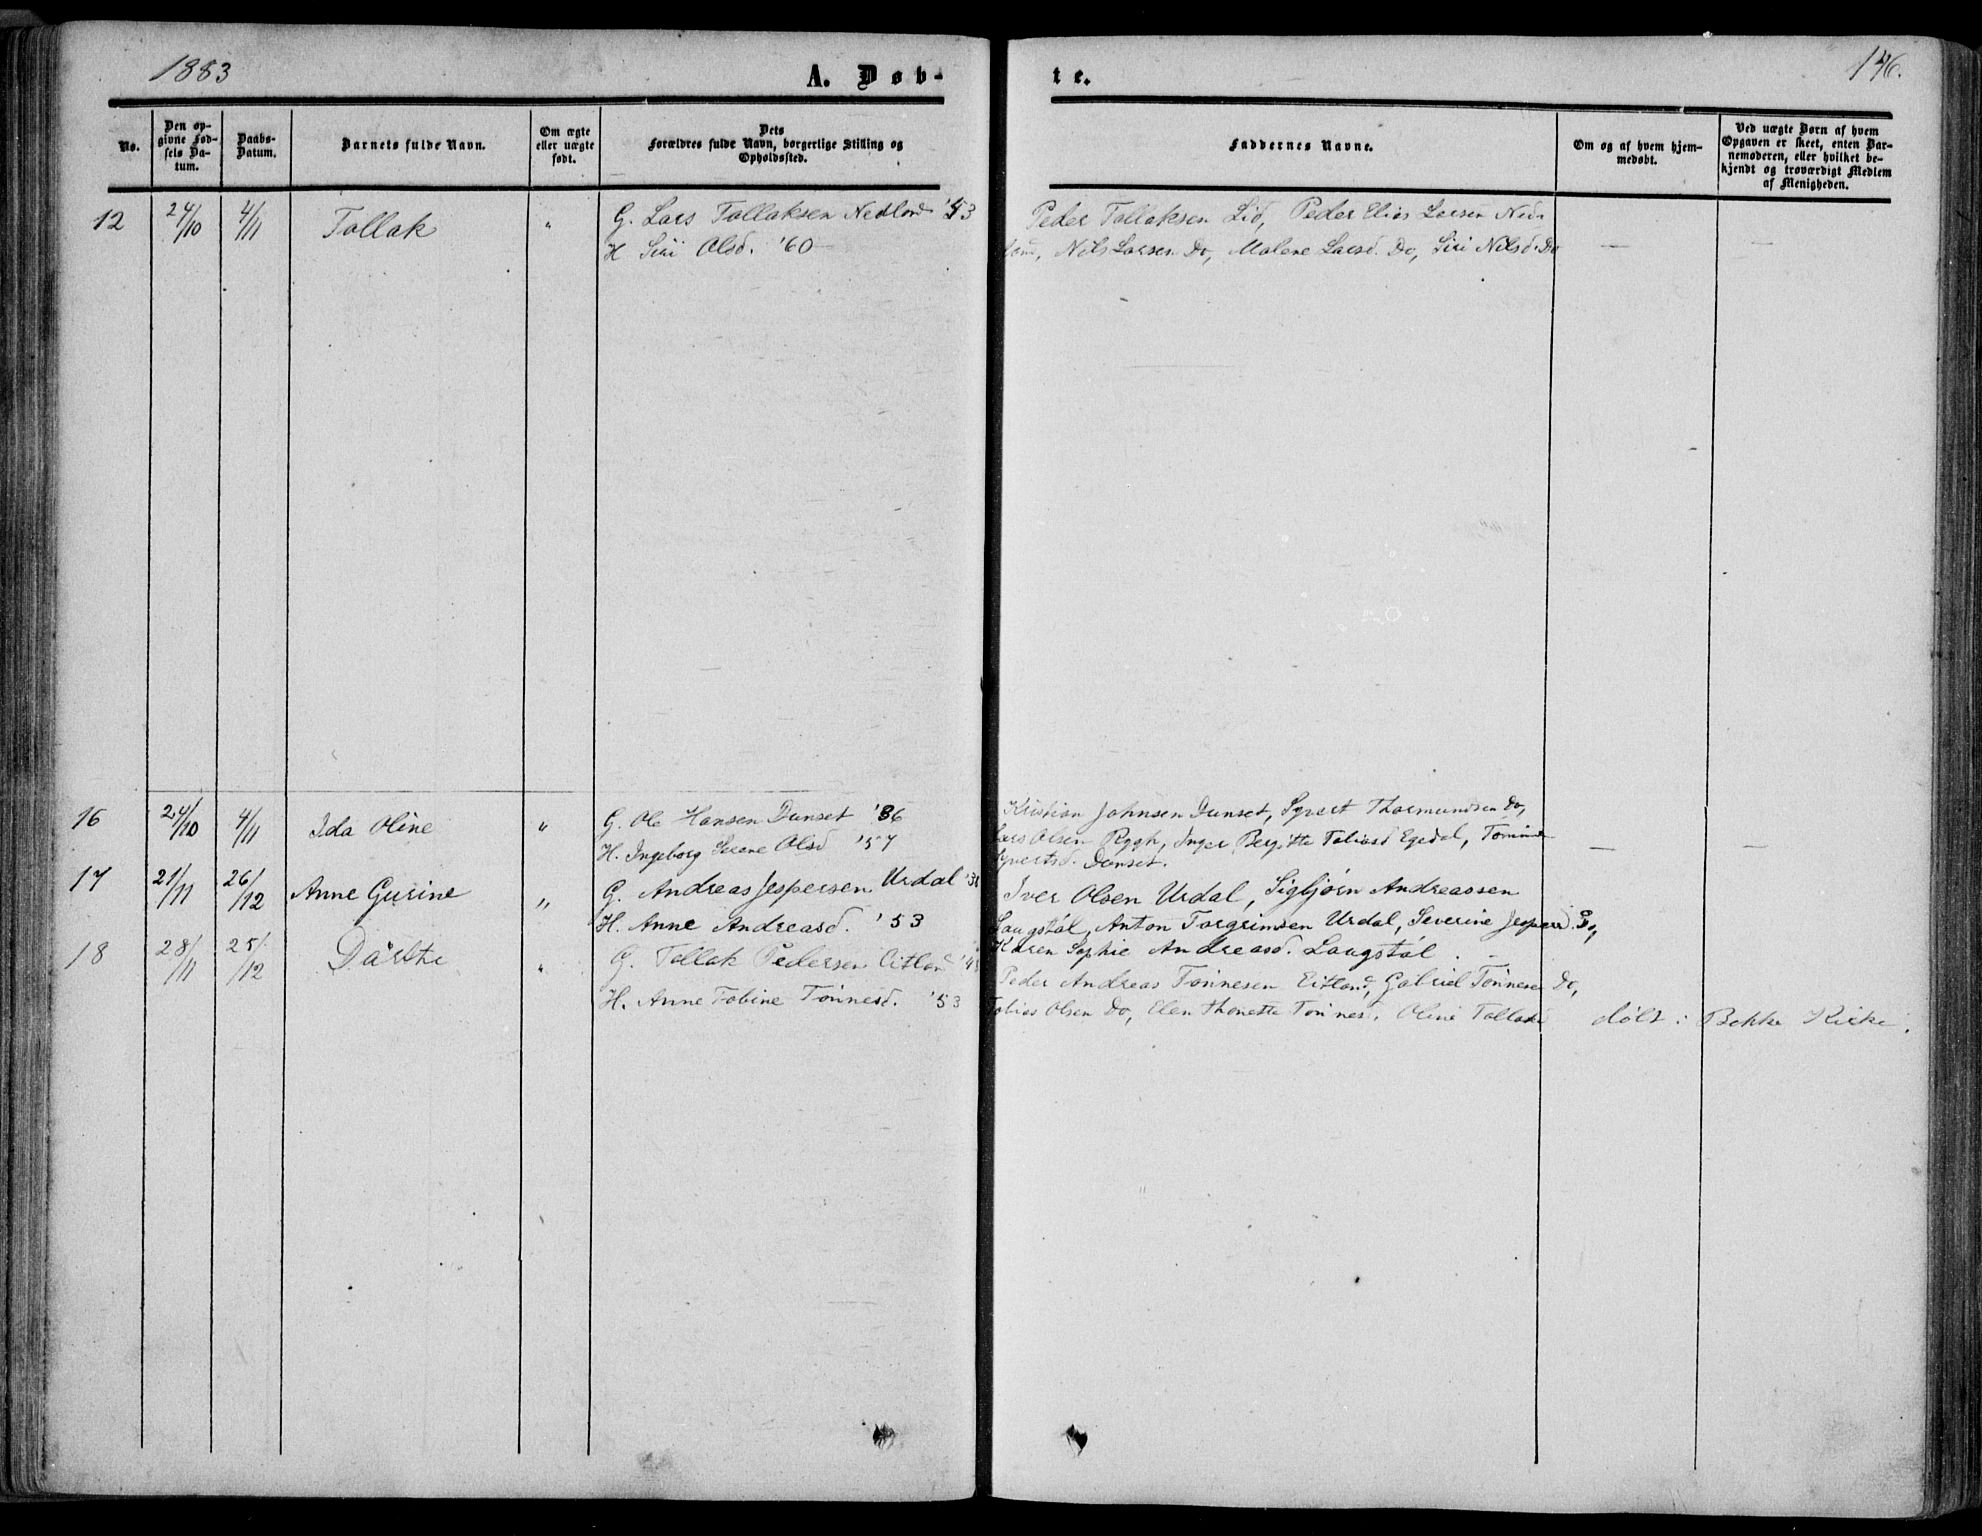 1883
A. Døb-
te.
146.
No.
Den op-
givne Fød-
sels Da-
tum.
Daabs-
Datum.
Barnets fulde Navn.
Om ægte
eller uægte
født.
Dets
Forældres fulde Navn, borgerlige Stilling og
Opholdssted.
Faddernes Navne.
Om og af hvem hjem-
medøbt.
Ved uægte Børn af hvem
Opgaven er skeet, enten Bar-
nemoderen, eller hvilket be-
kjendt og troværdigt Medlem
af Menigheden.
12 24/10 4/11 Tollak " G. Lars Tollaksen Nedland '53
H Siri Olsd. '60
Peder Tollaksen Lid, Peder Elias Larsen Ned-
land, Nils Larsen Do, Malene Larsd. Do, Siri Nilsd. Do — —
16 24/10 4/11 Ida Oline " G. Ole Hansen Dunset '36
H. Ingeborg Serene Olsd '57
Kristian Johnsen Dunset, Syvert Thormundsen Do,
Lars Olsen Rygh, Inger Bergitte Tobiasd Egedal, Tomine
Syvertsd. Dunset. — —
17 21/11 26/12 Anne Gurine " G. Andreas Jespersen Urdal '38
H. Anne Andreasd. '53
Iver Olsen Urdal, Sigbjørn Andreassen
Laugstøl, Anton Torgrimsen Urdal, Severine Jespersd. Do,
Karen Sophie Andreasd. Laugstøl.
18 28/11 25/12 Dårthe " G. Tollak Pedersen Eitland
H. Anne Tobine Tønnesd. '53
Peder Andreas Tønnesen Eitland, Gabriel Tønnesen Do,
Tobias Olsen Do, Elen Thonette Tønnes. Oline Tollaks
døbt i Bakke Kirke.